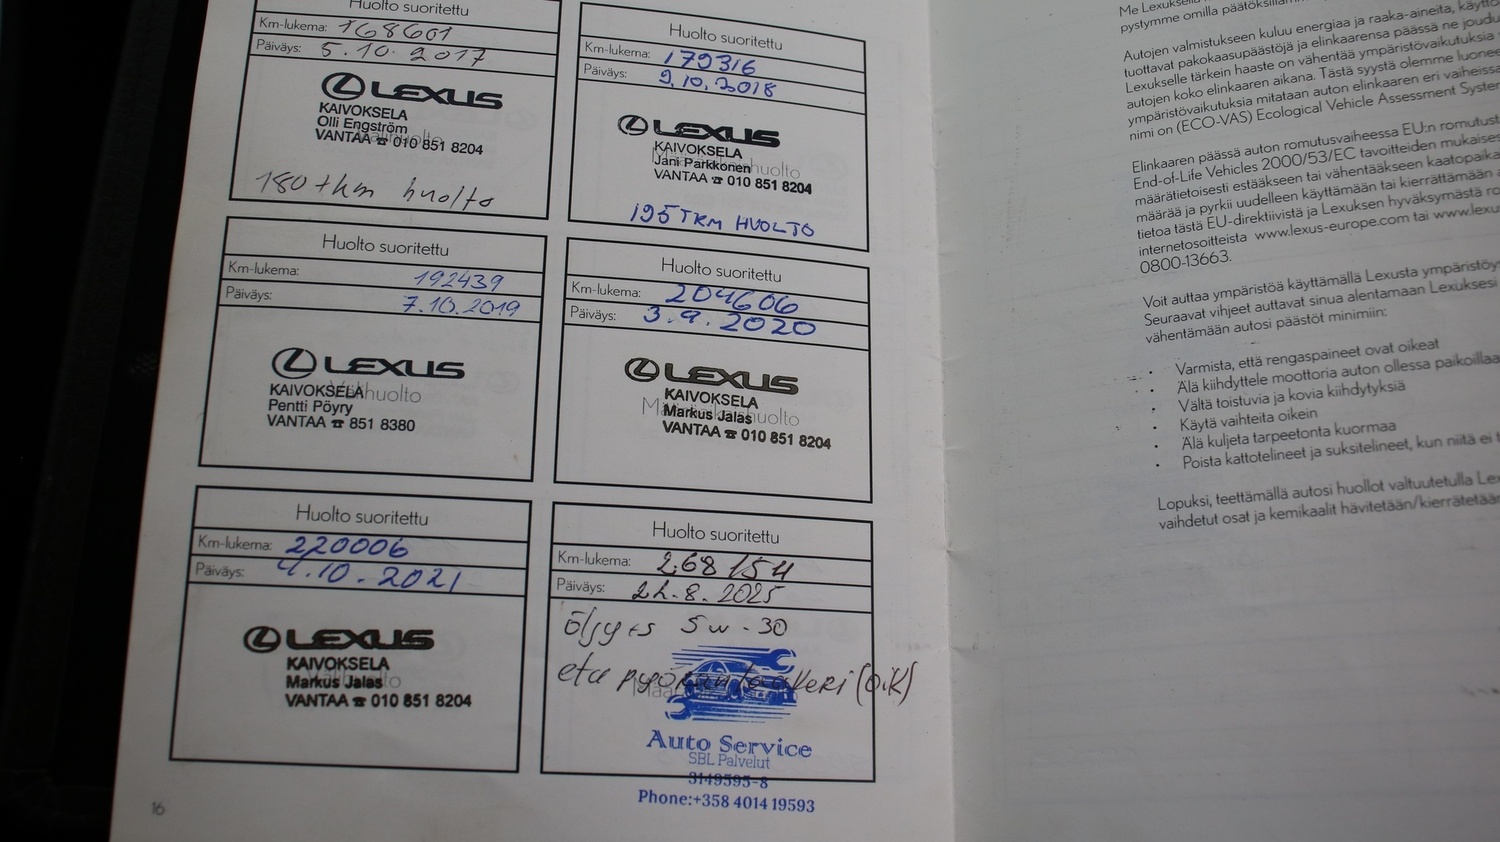 Huolto suoritettu
Km-lukema: 168601
Päiväys: 5.10.2017
LEXUS
KAIVOKSELA
Olli Engström
VANTAA ☎ 010 851 8204
180 tkm huolto
Huolto suoritettu
Km-lukema: 179316
Päiväys: 9.10.2018
LEXUS
KAIVOKSELA
Jani Parkkonen
VANTAA ☎ 010 851 8204
195 TKM HUOLTO
Huolto suoritettu
Km-lukema: 192439
Päiväys: 7.10.2019
LEXUS
KAIVOKSELA
Pentti Pöyry
VANTAA ☎ 851 8380
Huolto suoritettu
Km-lukema: 204606
Päiväys: 3.9.2020
LEXUS
KAIVOKSELA
Markus Jalas
VANTAA ☎ 010 851 8204
Huolto suoritettu
Km-lukema: 220006
Päiväys: 4.10.2021
LEXUS
KAIVOKSELA
Markus Jalas
VANTAA ☎ 010 851 8204
Huolto suoritettu
Km-lukema: 268154
Päiväys: 22.8.2025
öljyts 5w-30
etu pyöränlaakeri (oik)
Auto Service
SBL Palvelut
3149595-8
Phone:+358 4014 19593
16
Me Lexuksella
pystymme omilla
Autojen valmistukseen kuluu energiaa ja raaka-aineita,
tuottavat pakokaasupäästöjä ja elinkaarensa päässä ne
Lexukselle tärkein haaste on vähentää ympäristövaikutuksia
autojen koko elinkaaren aikana. Tästä syystä olemme
ympäristövaikutuksia mitataan auton elinkaaren eri vaiheissa
nimi on (ECO-VAS) Ecological Vehicle Assessment
Elinkaaren päässä auton romutusvaiheessa EU:n
End-of-Life Vehicles 2000/53/EC tavoitteiden
määrätietoisesti estääkseen tai vähentääkseen
määrää ja pyrkii uudelleen käyttämään tai kierrättämään
tietoa tästä EU-direktiivistä ja Lexuksen hyväksymästä
internetosoitteista www.lexus-europe.com tai
0800-13663.
Voit auttaa ympäristöä käyttämällä Lexusta
Seuraavat vihjeet auttavat sinua alentamaan Lexuksesi
vähentämään autosi päästöt minimiin:
• Varmista, että rengaspaineet ovat oikeat
• Älä kiihdyttele moottoria auton ollessa
• Vältä toistuvia ja kovia kiihdytyksiä
• Käytä vaihteita oikein
• Älä kuljeta tarpeetonta kuormaa
• Poista kattotelineet ja suksitelineet, kun niitä ei
Lopuksi, teettämällä autosi huollot valtuutetulla
vaihdetut osat ja kemikaalit